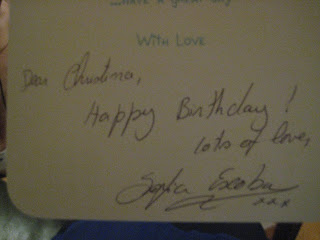 ...HAVE A GREAT DAY
WITH LOVE
Dear Christina,
Happy Birthday!
lots of love,
Sofia Escobar
xxx